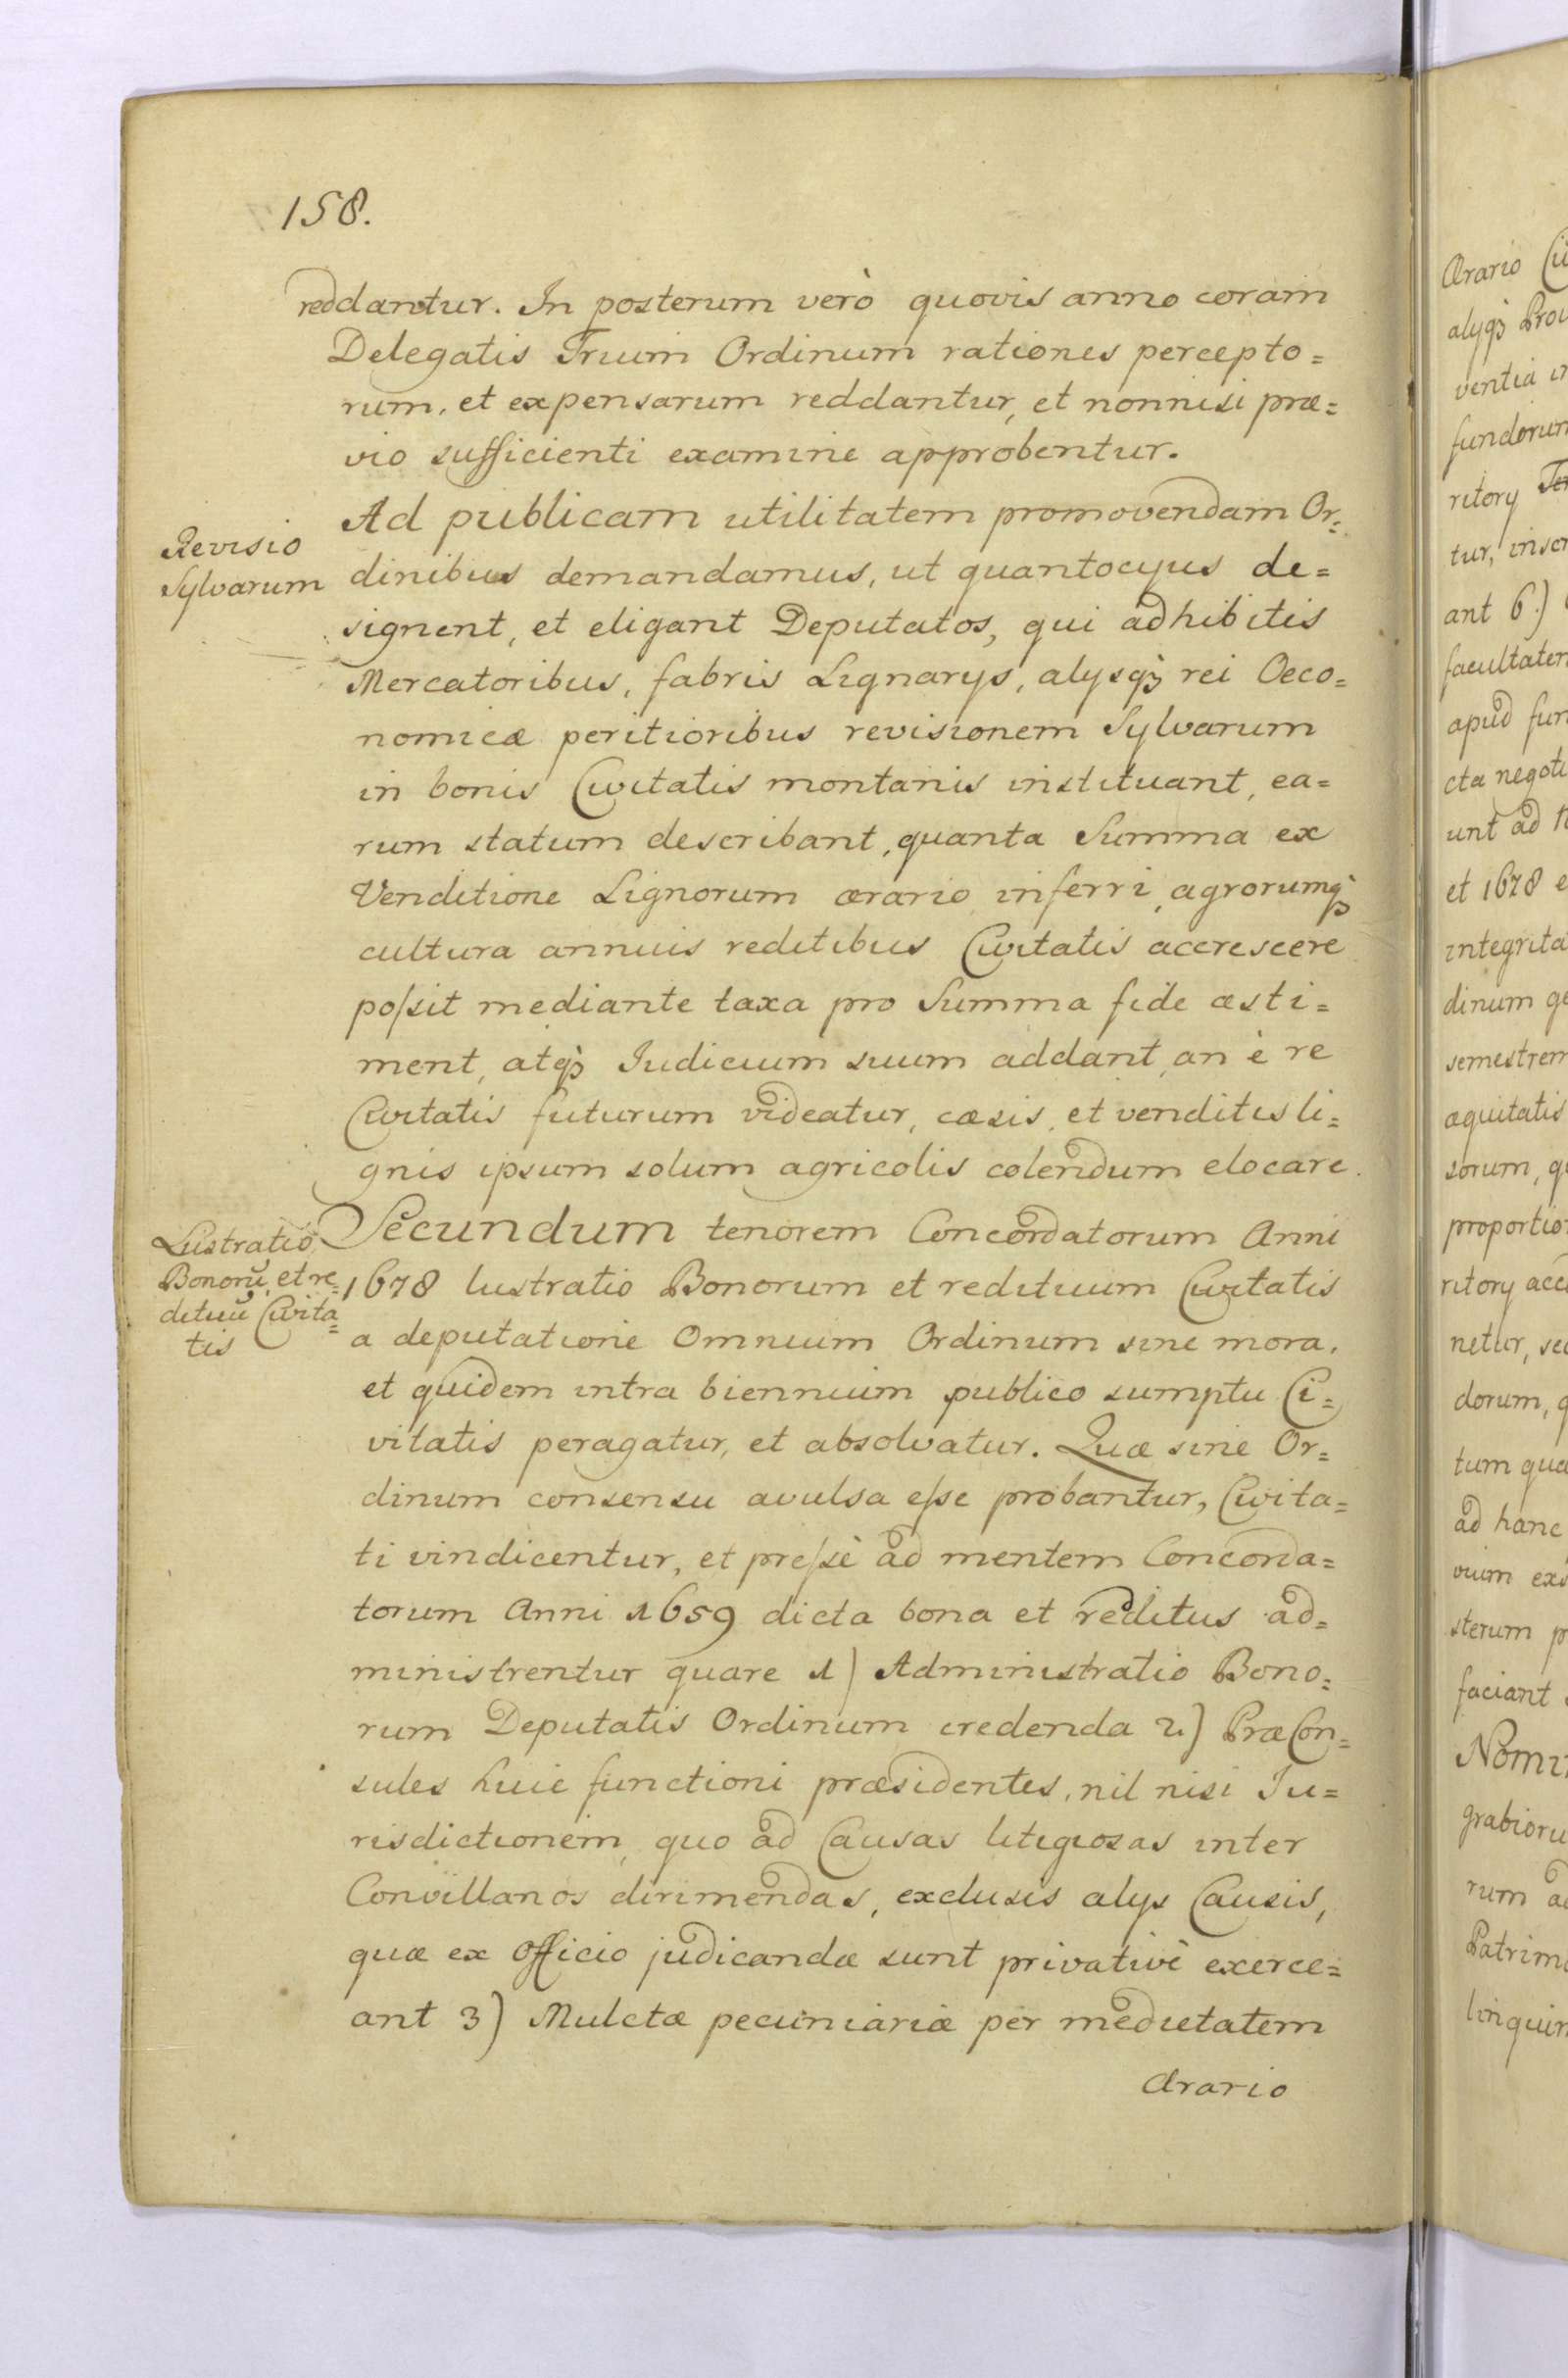 158.
reddantur. In posterum verò quovis anno coram
Delegatis Trium Ordinum rationes percepto=
rum, et expensarum reddantur, et nonnisi præ=
vio sufficienti examine approbentur.
Revisio
Sylvarum
Ad publicam utilitatem promovendam Or=
dinibus demandamus, ut quantocyus de=
signent, et eligant Deputatos, qui adhibitis
Mercatoribus, fabris Lignarys, alysq3 rei Oeco=
nomicæ peritioribus revisionem Sylvarum
in bonis Civitatis montanis instituant, ea=
rum statum describant, quanta Summa ex
Venditione Lignorum ærario inferri, agrorumq3
cultura annuis reditibus Civitatis accrescere
poſsit mediante taxa pro Summa fide æsti=
ment, atq3 Iudicium suum addant, an è re
Civitatis futurum videatur, cæsis, et venditis li=
gnis ipsum solum agricolis colendum elocare.
Lustratio
Bonorū, et re=
dituū Civita=
tis
Secundum tenorem Concordatorum Anni
1678 lustratio Bonorum et redituum Civitatis
a deputatione Omnium Ordinum sine mora,
et quidem intra biennium publico sumptu Ci=
vitatis peragatur, et absolvatur. Quæ sine Or=
dinum consensu avulsa eſse probantur, Civita=
ti vindicentur, et preſsè ad mentem Concorda=
torum Anni 1659 dicta bona et reditus ad=
ministrentur quare 1) Administratio Bono=
rum Deputatis Ordinum credenda 2.) PræCon=
sules huic functioni præsidentes, nil nisi Iu=
risdictionem, quo ad Causas litigiosas inter
Convillanos dirimendas, exclusis alys Causis,
quæ ex Officio judicandæ sunt privativè exerce=
ant 3) Mulctæ pecuniariæ per medietatem
Ærario
Ærario
alyq3
ventia
ritory
tur,
ant 6.)
apud
cta
unt ad
et 1678
dinum
semestrem
æquitatis
sorum,
ritory
netur,
dorum,
tum
ad hanc
vium
sterum
faciant
rum